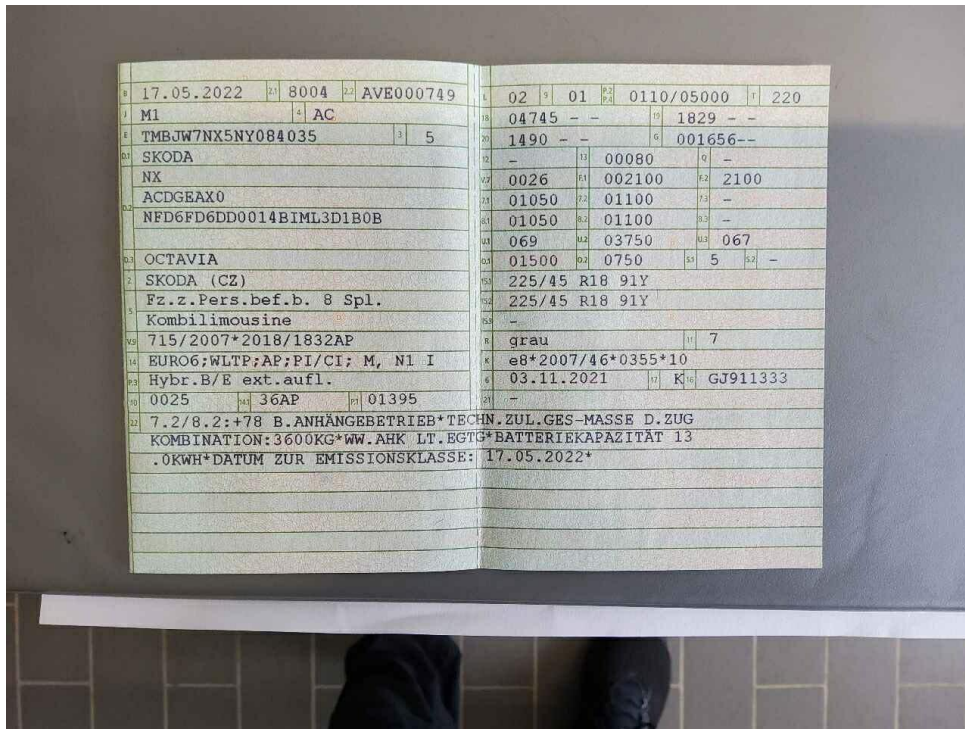 B 17.05.2022 2.1 8004 2.2 AVE000749
J M1 4 AC
E TMBJW7NX5NY084035 3 5
D.1 SKODA
NX
D.2 ACDGEAX0
NFD6FD6DD0014BIML3D1B0B
D.3 OCTAVIA
2 SKODA (CZ)
5 Fz.z.Pers.bef.b. 8 Spl.
Kombilimousine
V.9 715/2007*2018/1832AP
14 EURO6;WLTP;AP;PI/CI; M, N1 I
P.3 Hybr.B/E ext.aufl.
10 0025 14.1 36AP P.1 01395
L 02 9 01 P.2 P.4 0110/05000 T 220
18 04745 - - 19 1829 - -
20 1490 - - G 001656--
12 - 13 00080 Q -
V.7 0026 F.1 002100 F.2 2100
7.1 01050 7.2 01100 7.3 -
8.1 01050 8.2 01100 8.3 -
U.1 069 U.2 03750 U.3 067
O.1 01500 O.2 0750 S.1 5 S.2 -
15.1 225/45 R18 91Y
15.2 225/45 R18 91Y
15.3 -
R grau 11 7
K e8*2007/46*0355*10
6 03.11.2021 17 K 16 GJ911333
21 -
22 7.2/8.2:+78 B.ANHÄNGEBETRIEB*TECHN.ZUL.GES-MASSE D.ZUG
KOMBINATION:3600KG*WW.AHK LT.EGTG*BATTERIEKAPAZITÄT 13
.0KWH*DATUM ZUR EMISSIONSKLASSE: 17.05.2022*